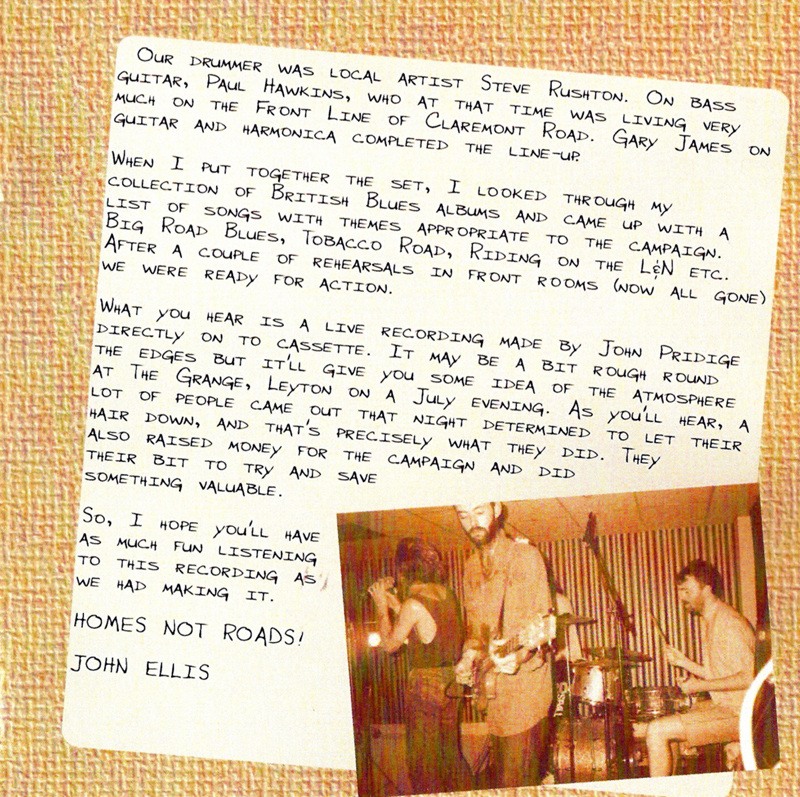 Our drummer was local artist Steve Rushton. On bass
guitar, Paul Hawkins, who at that time was living very
much on the Front Line of Claremont Road. Gary James on
guitar and harmonica completed the line-up.
When I put together the set, I looked through my
collection of British Blues albums and came up with a
list of songs with themes appropriate to the campaign.
Big Road Blues, Tobacco Road, Riding on the L&N etc.
After a couple of rehearsals in front rooms (now all gone)
we were ready for action.
What you hear is a live recording made by John Pridige
directly on to cassette. It may be a bit rough round
the edges but it'll give you some idea of the atmosphere
at The Grange, Leyton on a July evening. As you'll hear, a
lot of people came out that night determined to let their
hair down, and that's precisely what they did. They
also raised money for the campaign and did
their bit to try and save
something valuable.
So, I hope you'll have
as much fun listening
to this recording as
we had making it.
HOMES NOT ROADS!
JOHN ELLIS